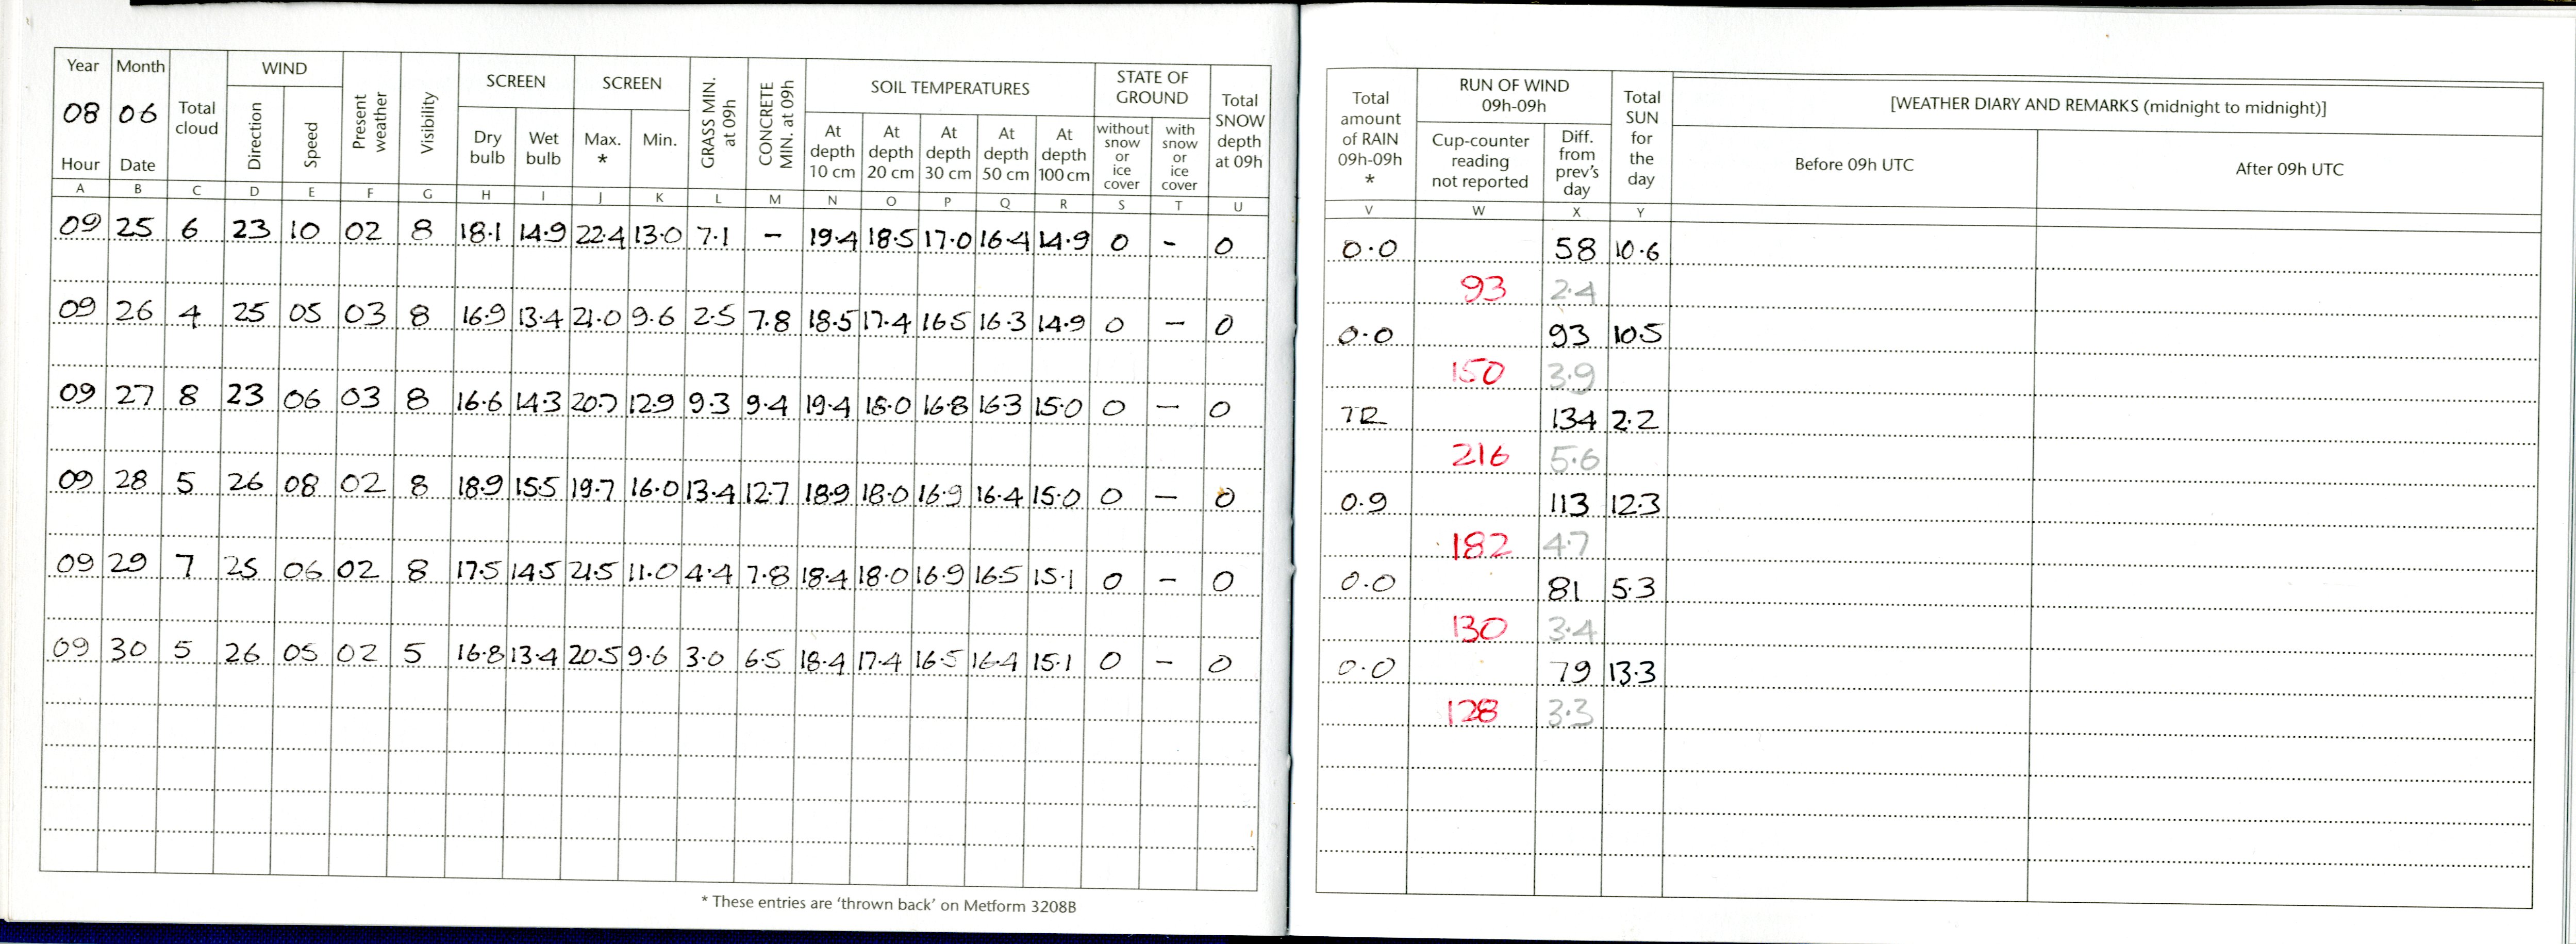 Year Month Total cloud WIND Present weather Visibility SCREEN SCREEN GRASS MIN. at 09h CONCRETE MIN. at 09h SOIL TEMPERATURES STATE OF GROUND Total SNOW depth at 09h
08 06 Direction Speed Dry bulb Wet bulb Max. * Min. At depth 10 cm At depth 20 cm At depth 30 cm At depth 50 cm At depth 100 cm without snow or ice cover with snow or ice cover
Hour Date
A B C D E F G H I J K L M N O P Q R S T U
09 25 6 23 10 02 8 18.1 14.9 22.4 13.0 7.1 – 19.4 18.5 17.0 16.4 14.9 0 – 0
09 26 4 25 05 03 8 16.9 13.4 21.0 9.6 2.5 7.8 18.5 17.4 16.5 16.3 14.9 0 – 0
09 27 8 23 06 03 8 16.6 14.3 20.7 12.9 9.3 9.4 19.4 18.0 16.8 16.3 15.0 0 – 0
09 28 5 26 08 02 8 18.9 15.5 19.7 16.0 13.4 12.7 18.9 18.0 16.9 16.4 15.0 0 – 0
09 29 7 25 06 02 8 17.5 14.5 21.5 11.0 4.4 7.8 18.4 18.0 16.9 16.5 15.1 0 – 0
09 30 5 26 05 02 5 16.8 13.4 20.5 9.6 3.0 6.5 18.4 17.4 16.5 16.4 15.1 0 – 0
* These entries are ‘thrown back’ on Metform 3208B
Total amount of RAIN 09h-09h * RUN OF WIND 09h-09h Total SUN for the day [WEATHER DIARY AND REMARKS (midnight to midnight)]
Cup-counter reading not reported Diff. from prev's day Before 09h UTC After 09h UTC
V W X Y
0.0 58 10.6
93 2.4
0.0 93 10.5
150 3.9
TR 134 2.2
216 5.6
0.9 113 12.3
182 4.7
0.0 81 5.3
130 3.4
0.0 79 13.3
128 3.3